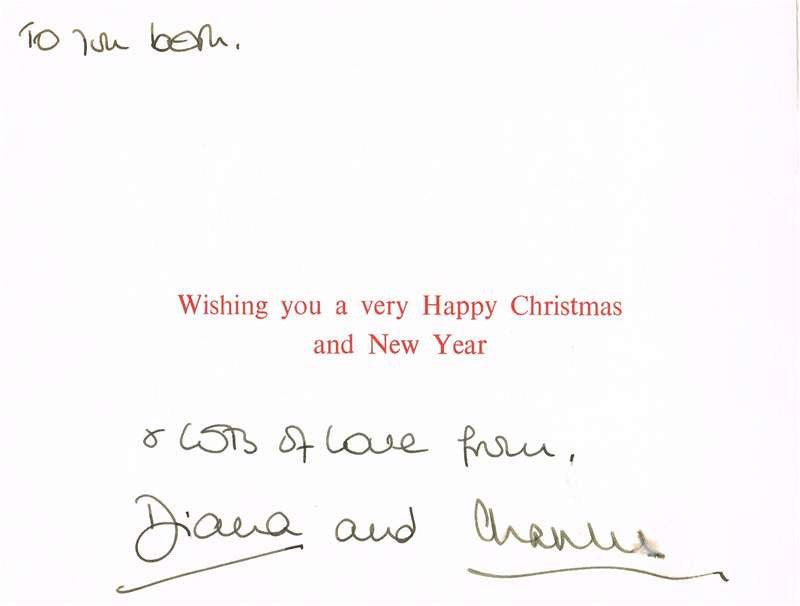 To you both.
Wishing you a very Happy Christmas
and New Year
& lots of love from,
Diana and Charles